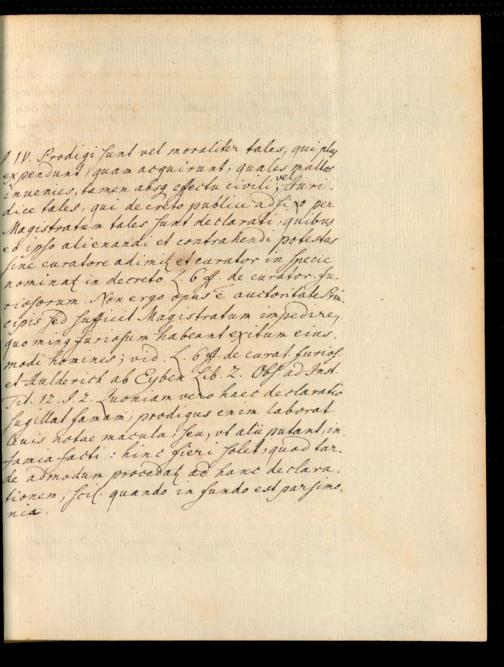 P. IV. Prodigi sunt vel moraliter tales, qui plus
expendunt, quam acquirunt, quales multos
invenies, tamen absq effectu civili; vel Juri-
dice tales, qui decreto publice adfixo per
Magistratum tales sunt declarati, quibus
eo ipso alienandi et contrahendi potestas
sine curatore adimit et curator in specie
nominat in decreto L. 6 ff. de curator. fu-
riosorum. Non ergo opus e auctoritate Prin
cipis sed sufficit Magistratum impedire,
quo ming furiosum habeant exitum eius-
modi homines; vid. L. 6 ff. de curat. furios.
et Hulderich ab Eyben Lib. 2. Obs. ad Inst.
Tit. 12. §. 2. Quoniam vero haec declaratio
sugillat famam, prodigus enim laborat
levis notae macula, seu, vt alii putant, in-
famia facti: hinc fieri solet, quod tar-
de admodum procedat ad hanc declara-
tionem, scil. quando in fundo est parsimo-
nia.